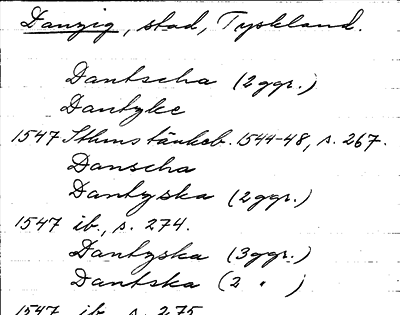 Danzig, stad, Tyskland.
Dantscha (2ggr.)
Dantyke
1547 Sthms tänkeb. 1544-48, s. 267.
Danscha
Dantyska (2ggr.)
1547 ib., s. 274.
Dantyska (3ggr.)
Dantska (2 " )
1547 ib. s. 275